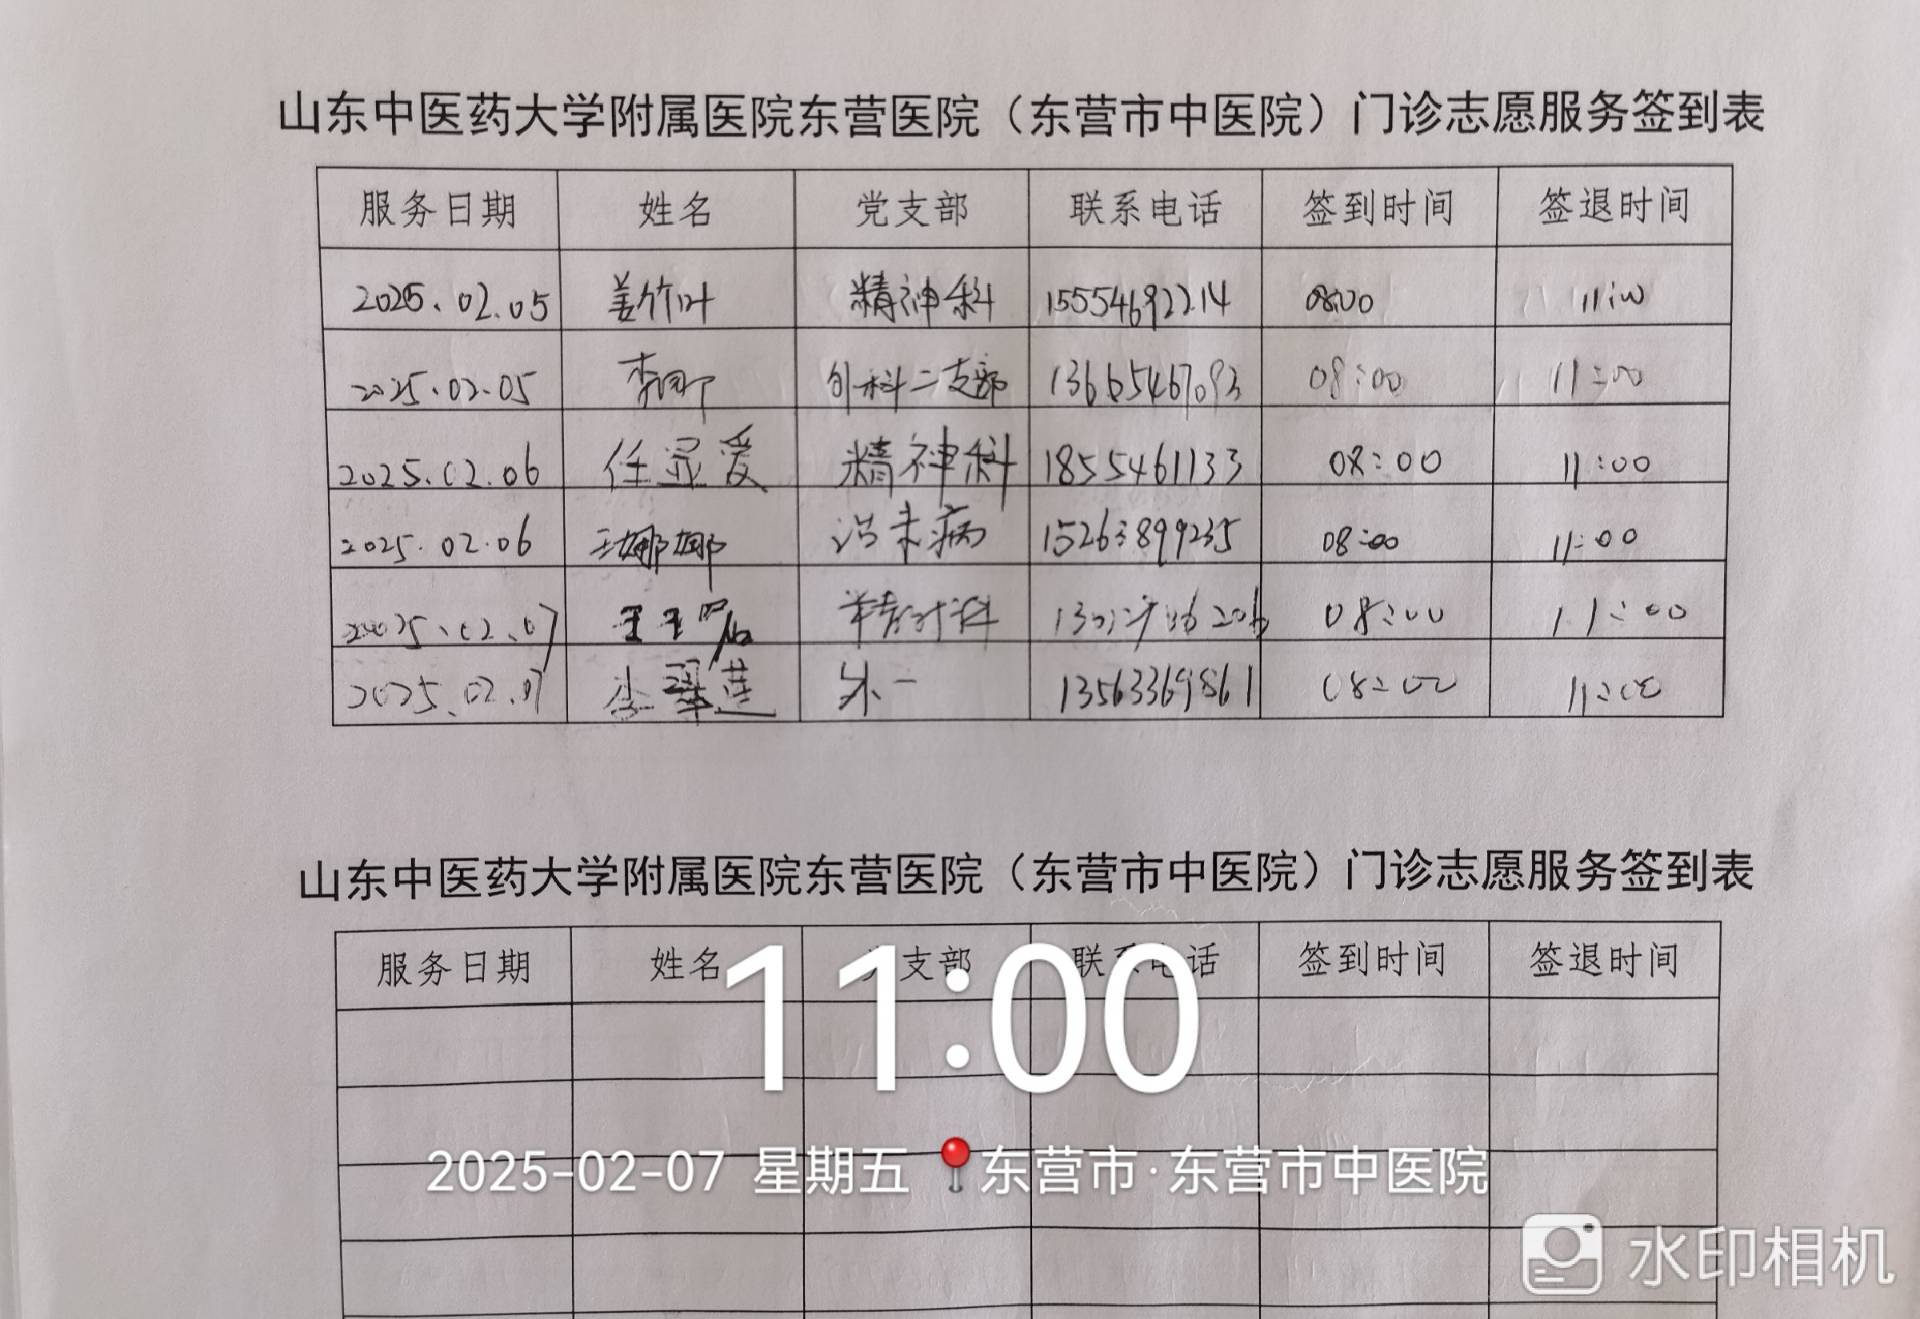 山东中医药大学附属医院东营医院（东营市中医院）门诊志愿服务签到表
服务日期 姓名 党支部 联系电话 签到时间 签退时间
2025.02.05 姜竹叶 精神科 15554692214 08:00 11:00
2025.02.05 外科二支部 13665467093 08:00 11:00
2025.02.06 任显爱 精神科 1855461133 08:00 11:00
2025.02.06 王娜娜 治未病 15263899235 08:00 11:00
2025.02.07 08:00 11:00
2025.02.07 李翠莲 13563369861 08:00 11:00
山东中医药大学附属医院东营医院（东营市中医院）门诊志愿服务签到表
服务日期 姓名 支部 联系电话 签到时间 签退时间
11:00
2025-02-07 星期五 东营市·东营市中医院
水印相机